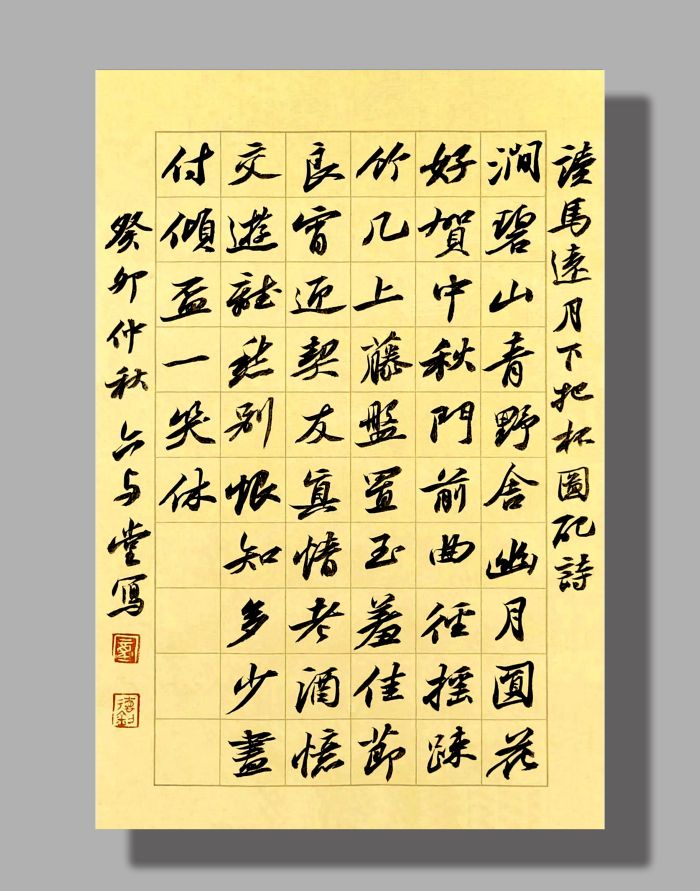 讀馬遠月下把杯圖配詩
澗碧山青野舍幽月圓花
好賀中秋門前曲徑搖踈
竹几上藤盤置玉羞佳節
良宵迎契友真情老酒憶
交遊離愁別恨知多少盡
付傾盃一笑休
癸卯仲秋六与堂寫